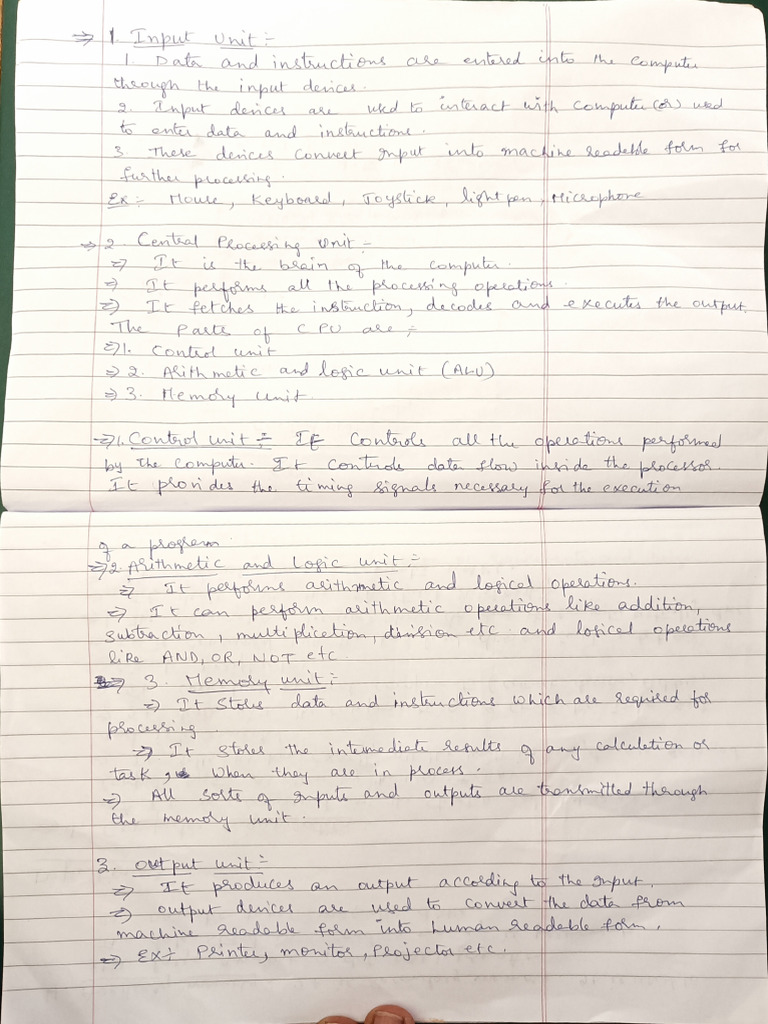 ⇒ 1. Input Unit :-
1. Data and instructions are entered into the computer
through the input devices.
2. Input devices are used to interact with computer (or) used
to enter data and instructions.
3. These devices convert input into machine readable form for
further processing.
Ex :- Mouse, Keyboard, Joystick, light pen, Microphone
⇒ 2. Central Processing Unit :-
⇒ It is the brain of the computer.
⇒ It performs all the processing operations.
⇒ It fetches the instruction, decodes and executes the output.
The Parts of CPU are :-
⇒ 1. Control unit
⇒ 2. Arithmetic and logic unit (ALU)
⇒ 3. Memory unit.
⇒ 1. Control unit :- It controls all the operations performed
by the computer. It controls data flow inside the processor.
It provides the timing signals necessary for the execution
of a program.
⇒ 2. Arithmetic and Logic unit :-
⇒ It performs arithmetic and logical operations.
⇒ It can perform arithmetic operations like addition,
subtraction, multiplication, division etc and logical operations
like AND, OR, NOT etc
⇒ 3. Memory unit :-
⇒ It stores data and instructions which are required for
processing.
⇒ It stores the intermediate results of any calculation or
task, when they are in process.
⇒ All sorts of inputs and outputs are transmitted through
the memory unit.
3. output unit :-
⇒ It produces an output according to the input.
⇒ output devices are used to convert the data from
machine readable form into human readable form.
⇒ Ex :- Printer, monitor, Projector etc.